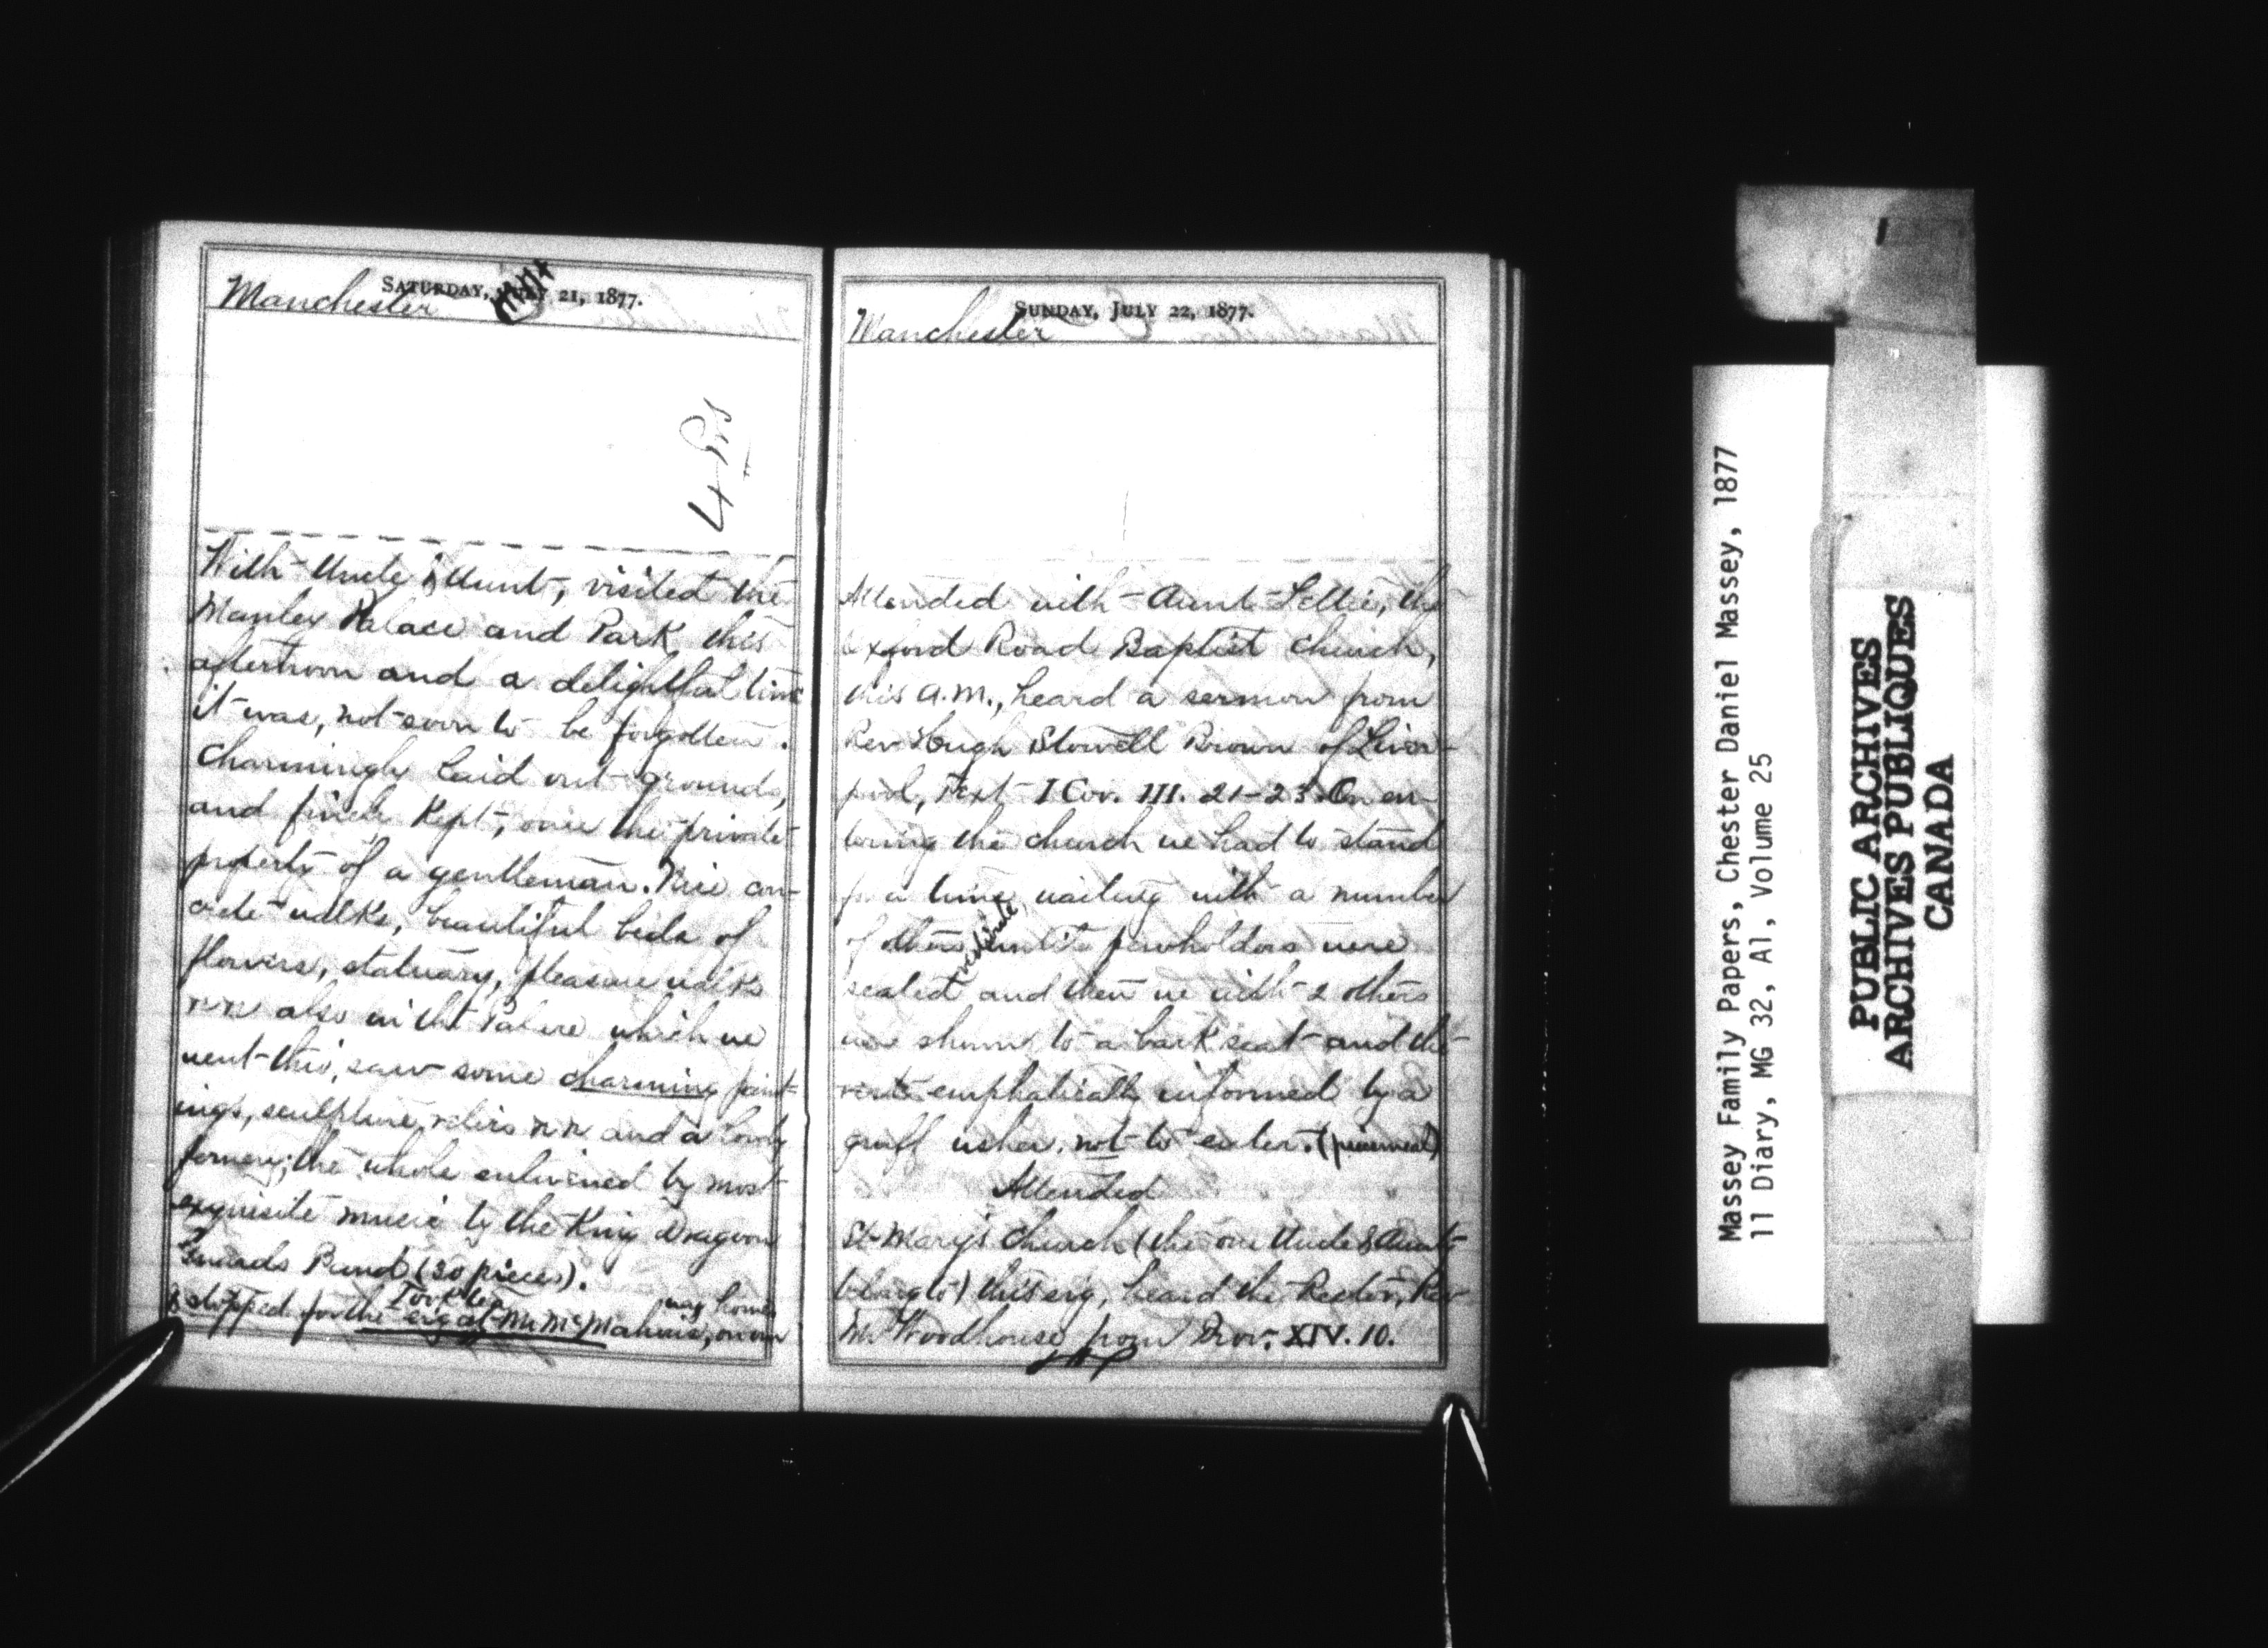 SATURDAY, JULY 21, 1877.
Manchester
With Uncle & Aunt, visited the
Manley Palace and Park this
afternoon and a delightful time
it was, not soon to be forgotten.
Charmingly laid out grounds,
and finely kept, once the private
property of a gentleman. Nice
walks, beautiful beds of
flowers, statuary, pleasure walks
also in the Palace which we
went thro', saw some charming paint-
ings, sculpture, and a lovely
fernery; the whole enlivened by most
exquisite music by the King Dragoon
Guards Band (30 pieces).
Took tea
& stopped for the evg at Mr McMahon's, on our
way home
SUNDAY, JULY 22, 1877.
Manchester
Attended with Aunt Lettie, the
Oxford Road Baptist Church,
this A.M., heard a sermon from
Rev Hugh Stowell Brown of Liver-
pool, Text I Cor. III. 21-23. On en-
tering the church we had to stand
for a time, waiting with a number
of others until pewholders were
vestibule
seated and then we with 2 others
were shown to a back seat and the
rest emphatically informed by a
gruff usher, not to enter.
Attended
St Mary's Church (the one Uncle & Aunt
belong to) this evg, heard the Rector, Rev
Mr Woodhouse from Prov. XIV. 10.
Massey Family Papers, Chester Daniel Massey, 1877
11 Diary, MG 32, A1, Volume 25
PUBLIC ARCHIVES
ARCHIVES PUBLIQUES
CANADA